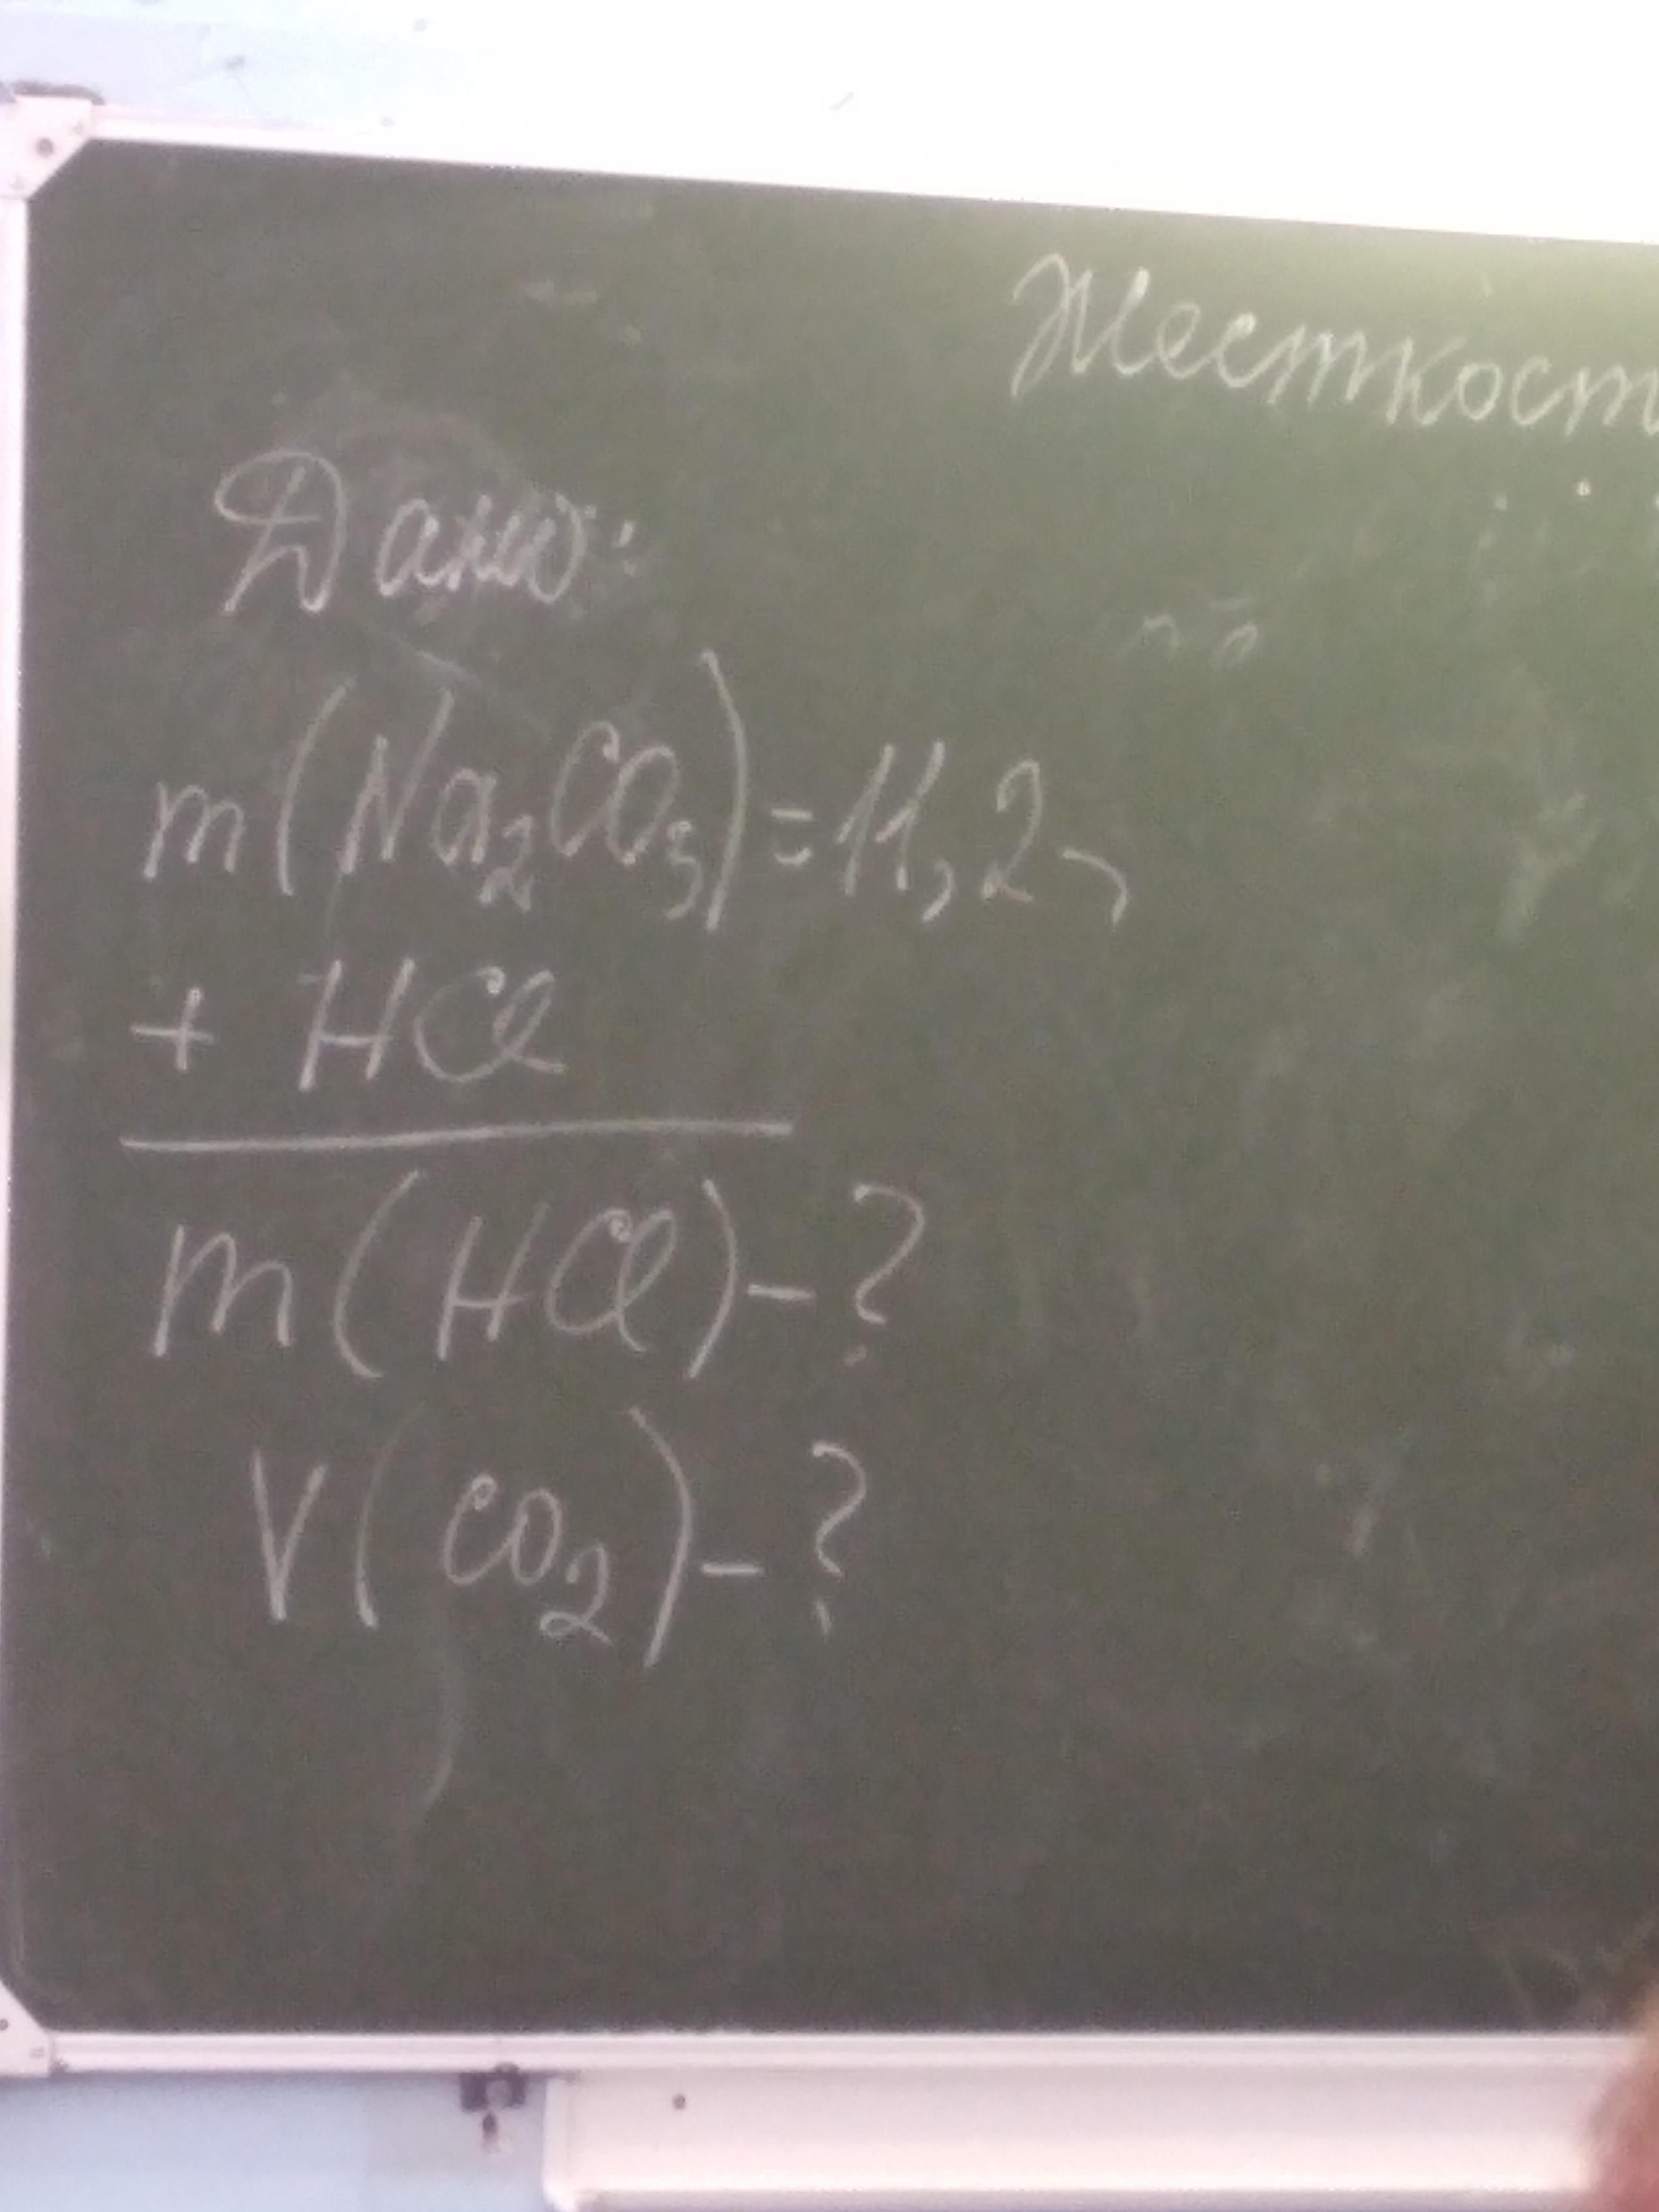 Жесткост
Дано:
m(Na₂CO₃)=11,2г
+ HCl
m(HCl)-?
V(CO₂)-?